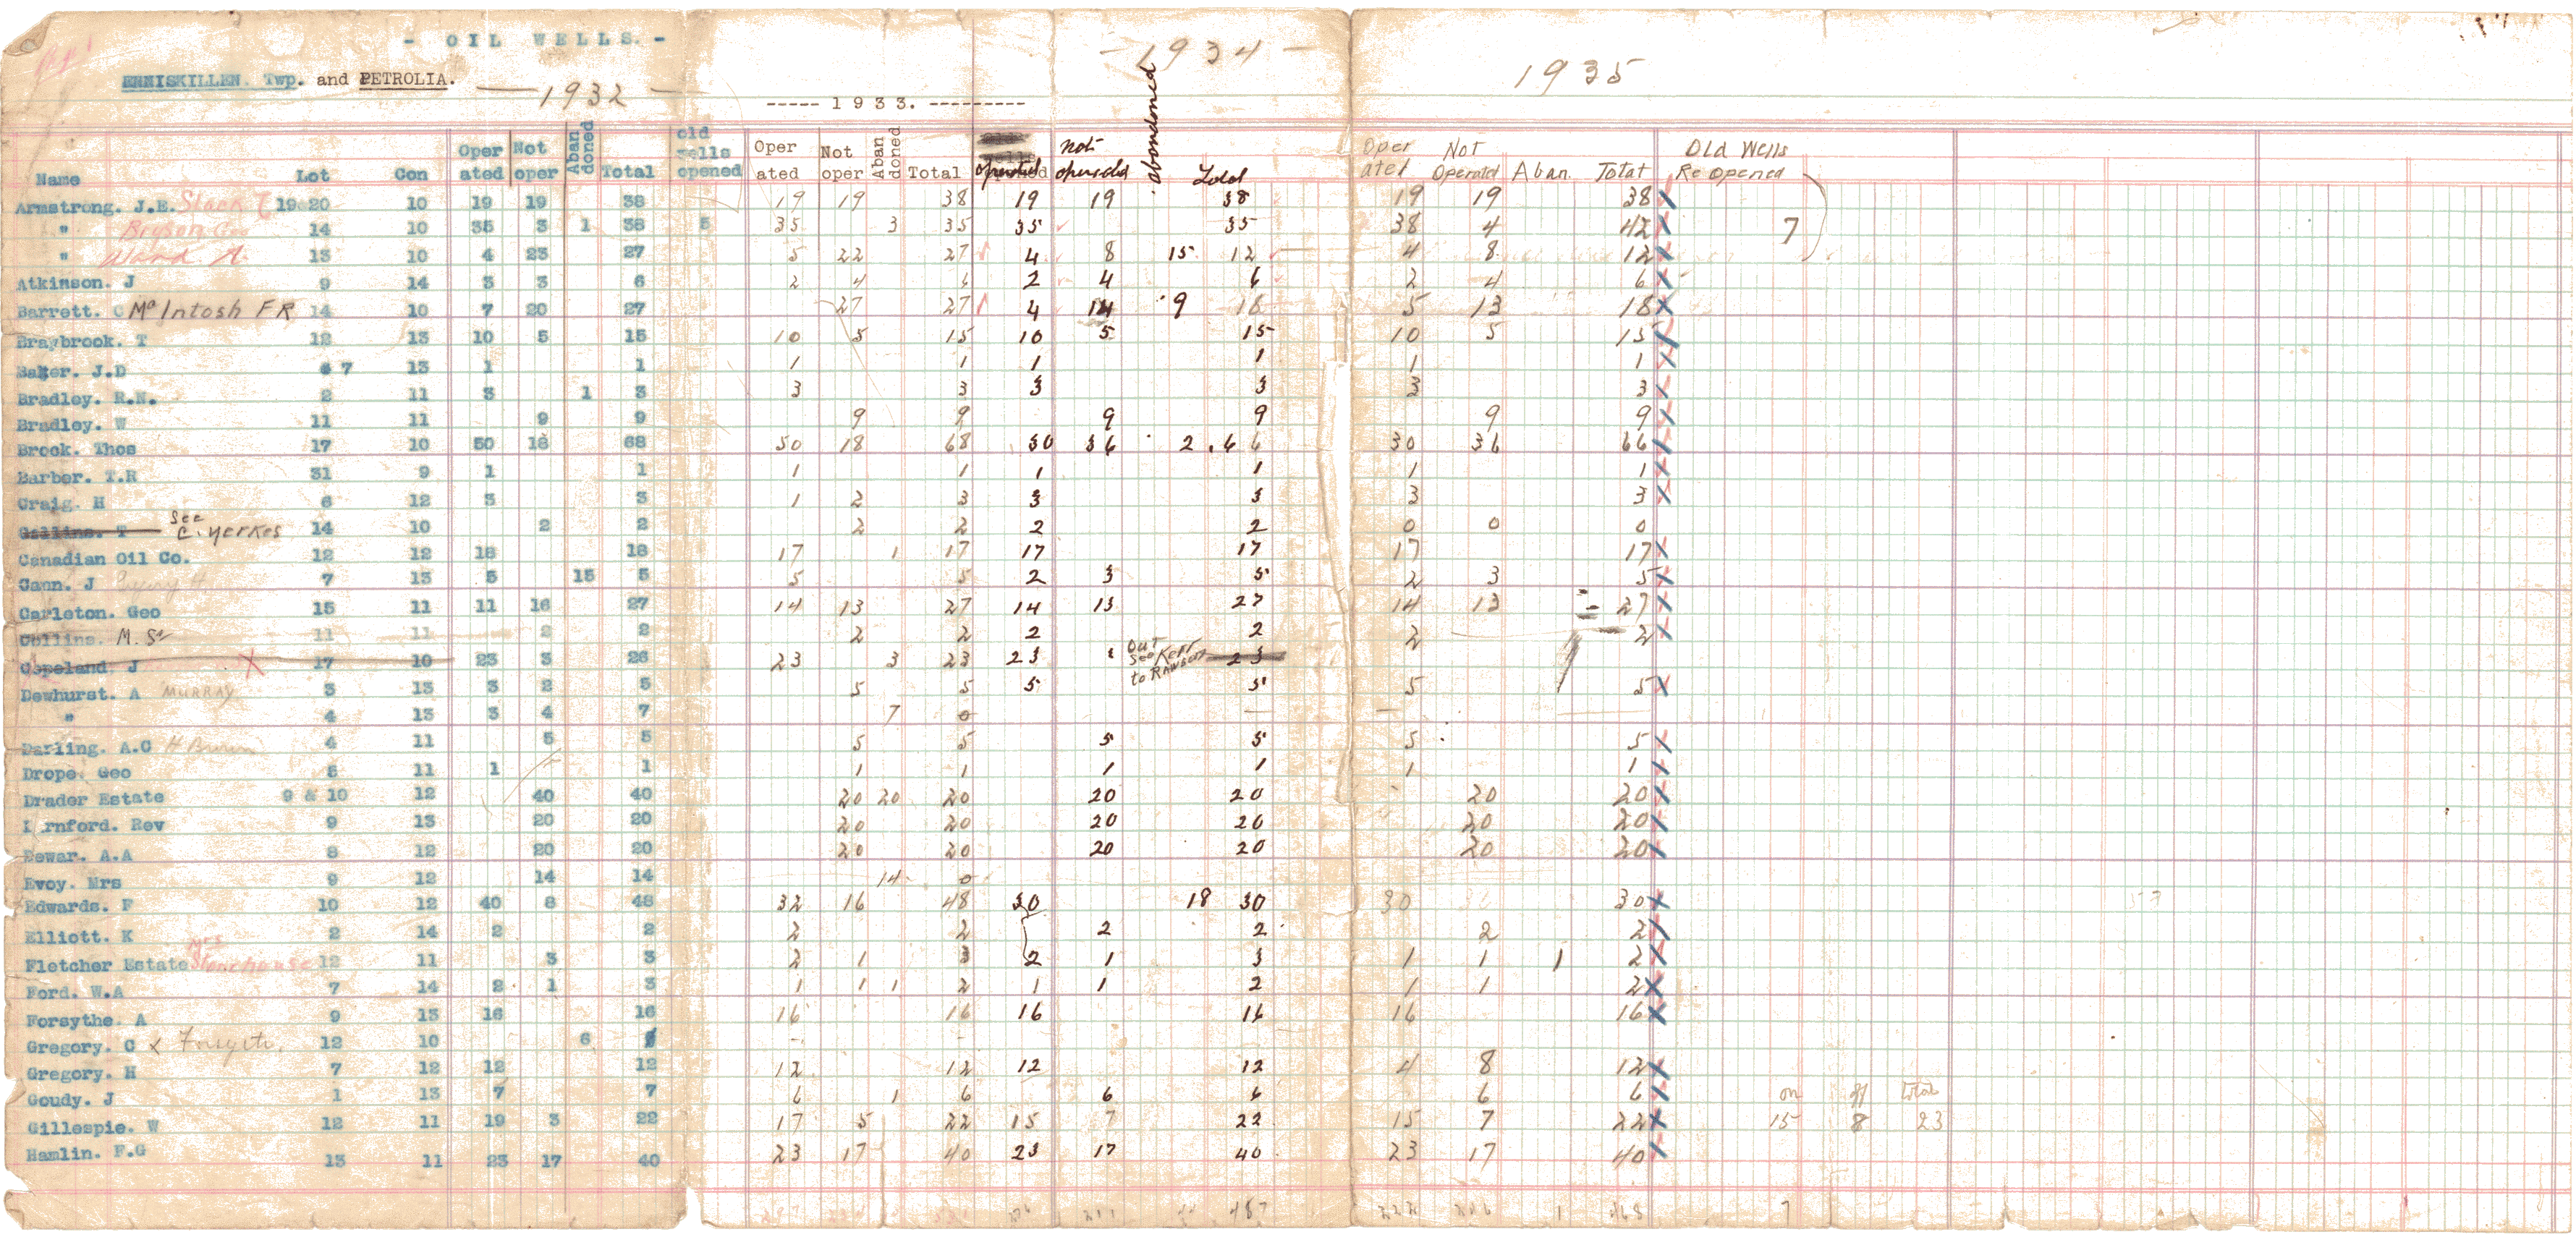 - OIL WELLS. -
ENNISKILLEN. Twp. and PETROLIA.
1932
----- 1933. ---------
- 1934 -
1935
Name Lot Con Oper ated Not oper Aban doned Total old wells opened Oper ated Not oper Aban doned Total operated not operated abandoned Total Oper ated Not Operated Aban. Total Old Wells Re Opened
Armstrong. J.E. Slack 19 20 10 19 19 38 19 19 38 19 19 38 19 19 38 X
" Bryson Geo 14 10 35 3 1 38 5 35 3 35 35 35 38 4 42 X 7
" Ward. A. 13 10 4 23 27 5 22 27 4 8 15 12 4 8 12 X
Atkinson. J 9 14 3 3 6 2 4 6 2 4 6 2 4 6 X
Barrett. C McIntosh F R 14 10 7 20 27 27 27 4 14 9 18 5 13 18 X
Braybrook. T 12 13 10 5 15 10 5 15 10 5 15 10 5 15 X
Baker. J.D 7 13 1 1 1 1 1 1 1 1 X
Bradley. R.N. 2 11 3 1 3 3 3 3 3 3 3 X
Bradley. W 11 11 9 9 9 9 9 9 9 9 X
Brock. Thos 17 10 50 18 68 50 18 68 30 36 2 66 30 36 66 X
Barber. T.R 31 9 1 1 1 1 1 1 1 1 X
Craig. H 6 12 3 3 1 2 3 3 3 3 3 X
Collins. T See C. Yerkes 14 10 2 2 2 2 2 2 0 0 0
Canadian Oil Co. 12 12 18 18 17 1 17 17 17 17 17 X
Cann. J 7 13 5 15 5 5 5 2 3 5 2 3 5 X
Carleton. Geo 15 11 11 16 27 14 13 27 14 13 27 14 13 27 X
Collins. M. Sr 11 11 2 2 2 2 2 2 2 2 X
Copeland J X 17 10 23 3 26 23 3 23 23 out see Kerr to Rawson 23
Dewhurst. A MURRAY 3 13 3 2 5 5 5 5 5 5 5 X
" 4 13 3 4 7 7 0 — —
Darling. A.C H Brown 4 11 5 5 5 5 5 5 5 5 X
Drope. Geo 5 11 1 1 1 1 1 1 1 1 X
Drader Estate 9 & 10 12 40 40 20 20 20 20 20 20 20 X
rnford. Rev 9 13 20 20 20 20 20 20 20 20 X
Dewar. A.A 8 12 20 20 20 20 20 20 20 20 X
Evoy. Mrs 9 12 14 14 14 0
Edwards. F 10 12 40 8 48 32 16 48 30 18 30 30 30 X
Elliott. K 2 14 2 2 2 2 2 2 2 2 X
Fletcher Estate Mrs Stonehouse 12 11 3 3 2 1 3 2 1 3 1 1 1 2 X
Ford. W.A 7 14 2 1 3 1 1 1 2 1 1 2 1 1 2 X
Forsythe. A 9 13 16 16 16 16 16 16 16 16 X
Gregory. C & Forsyth. 12 10 6 - -
Gregory. H 7 12 12 12 12 12 12 12 4 8 12 X
Goudy. J 1 13 7 7 6 1 6 6 6 6 6 X on off total
Gillespie. W 12 11 19 3 22 17 5 22 15 7 22 15 7 22 X 15 8 23
Hamlin. F.G 13 11 23 17 40 23 17 40 23 17 40 23 17 40 X
211 487 1 468 7